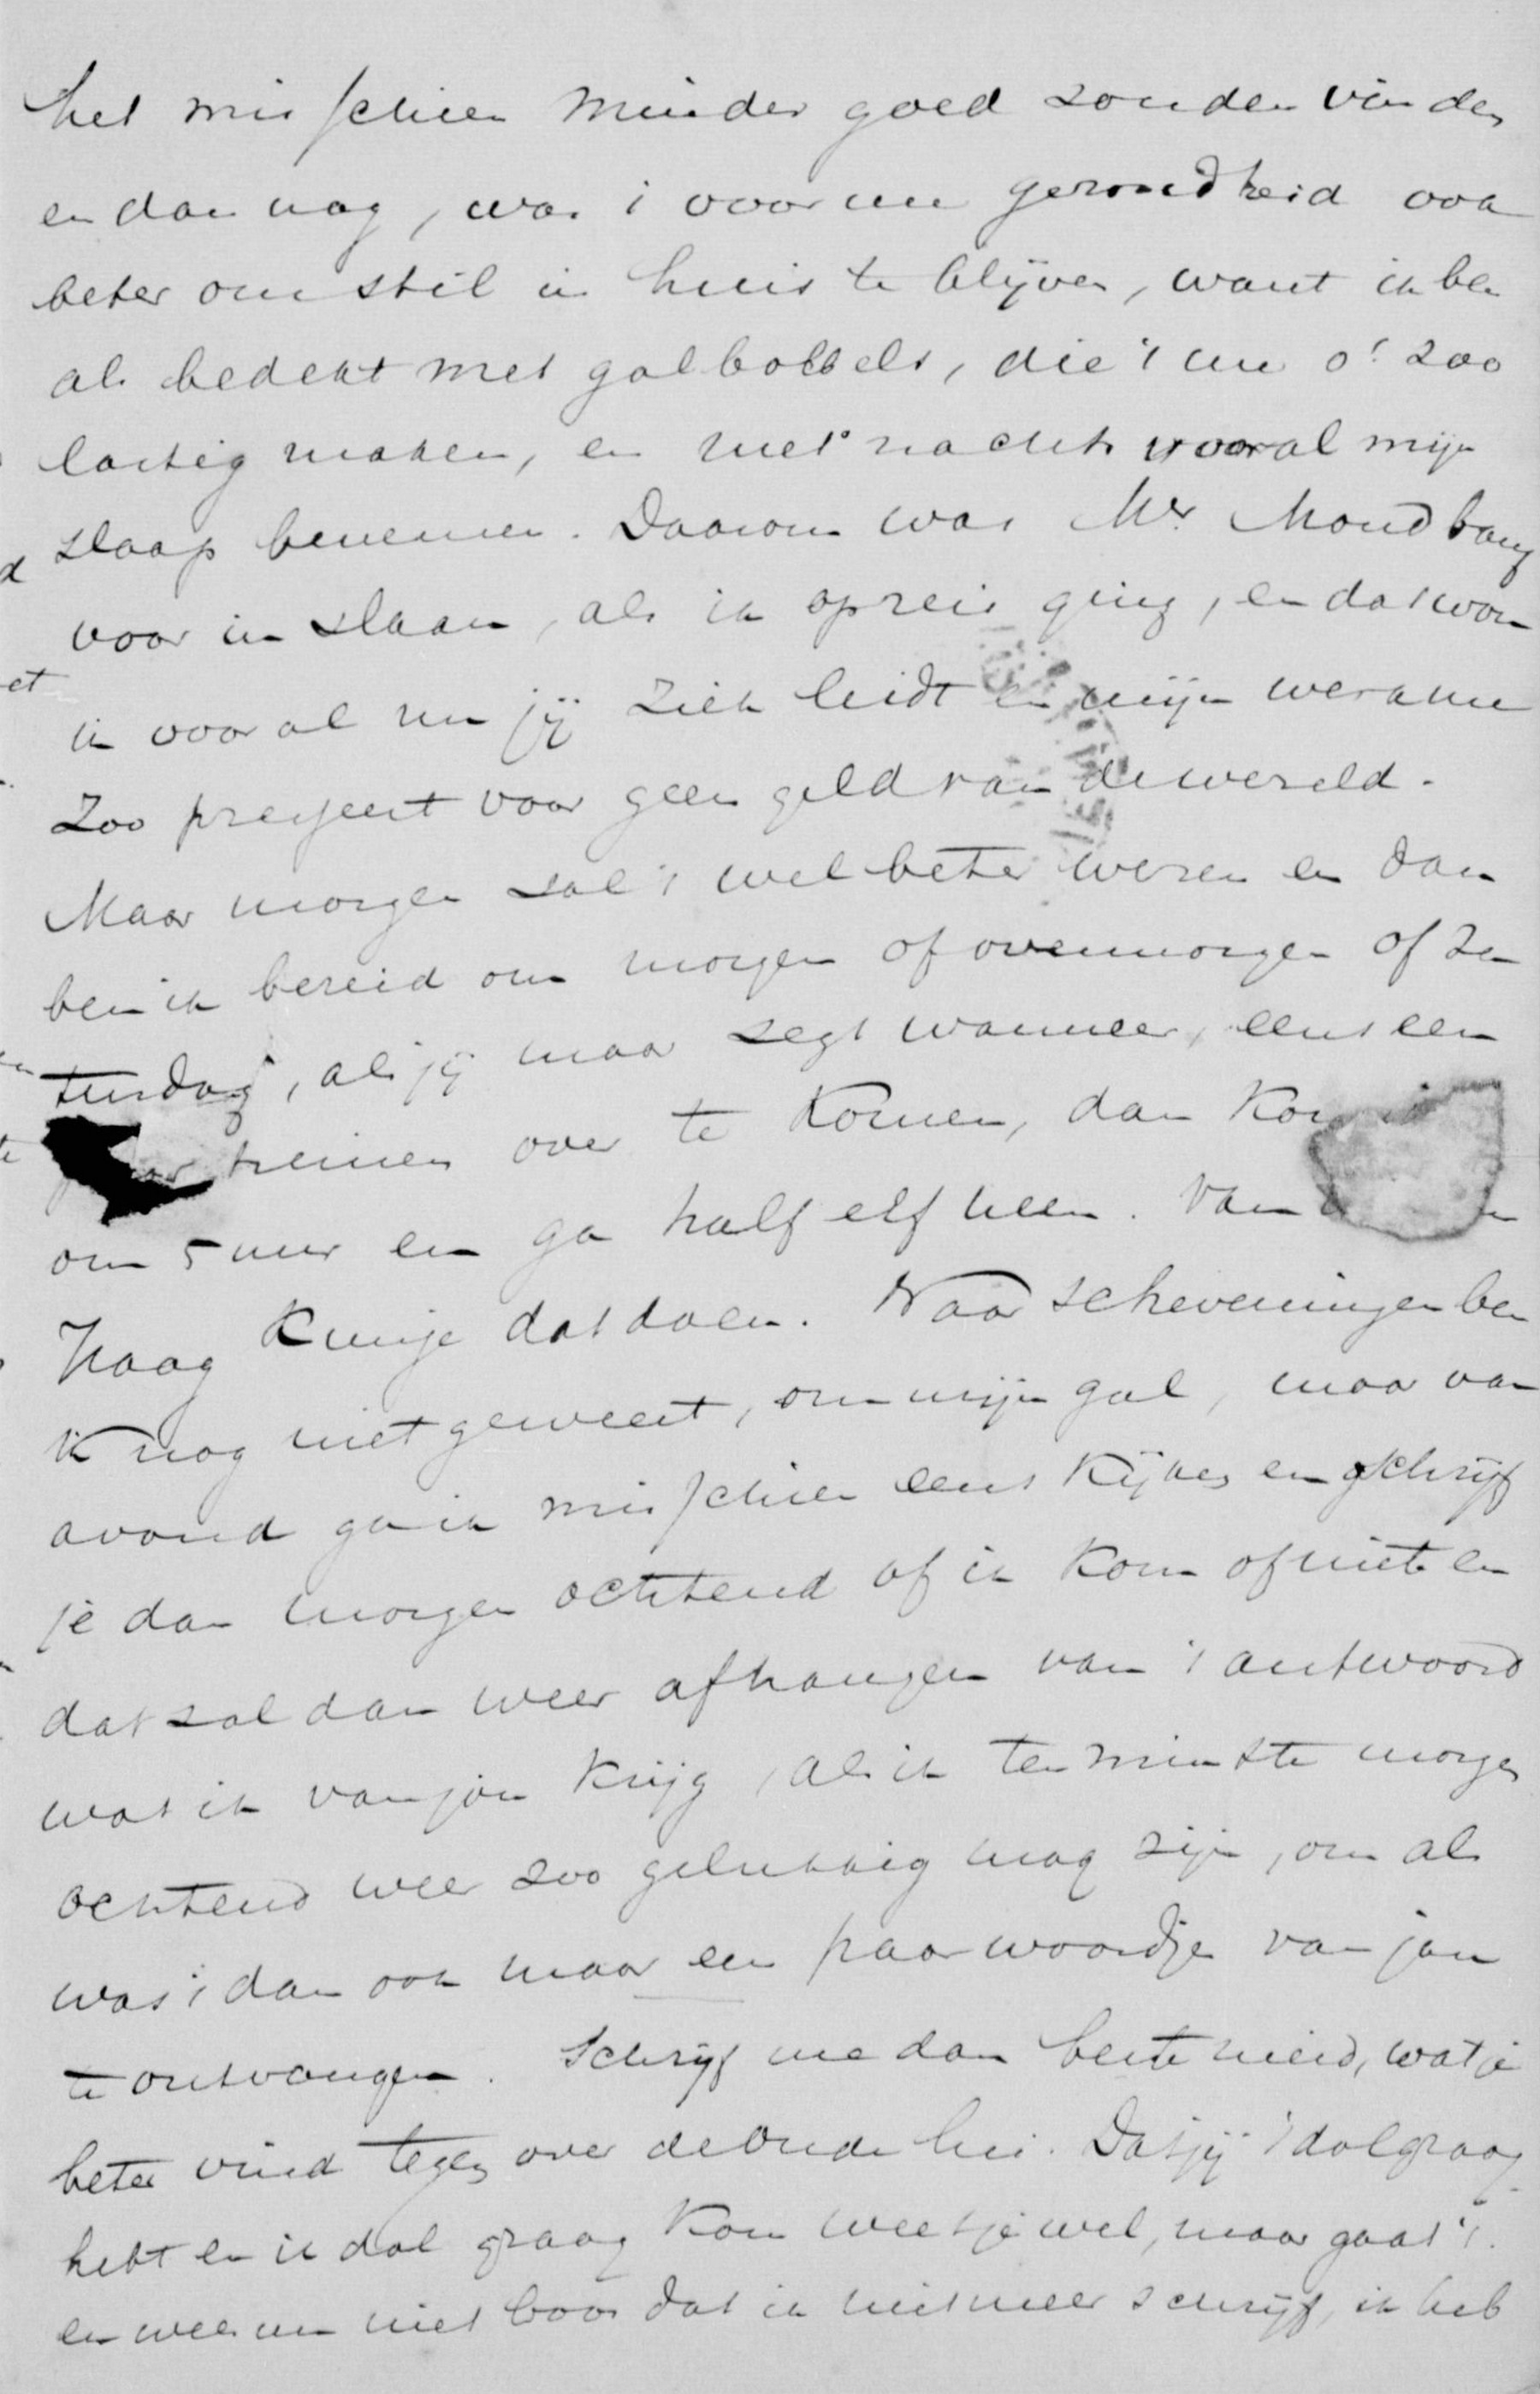 het misschien minder goed zouden vinden
en dan nog, was 't voor me gezondheid ook
beter om stil in huis te blijven, want ik ben
als bedekt met galbobbels, die 't me o! zoo
lastig maken, en met nachts vooral mijn
slaap benemen. Daarom was Mr. Mond bang
voor in staan, als ik op reis ging, en dat won
ik vooral nu jij ziek leidt en mijn werk me
zoo presseert voor geen geld van de wereld.
Maar morgen zal 't wel beter wezen en dan
ben ik bereid om morgen of overmorgen of za
turdag, als jij maar zegt wanneer, eens een
treinen over te komen, dan
om 5 uur en ga half elf heen. Van
Haag kun je dat doen. Naar Scheveningen ben
ik nog niet geweest, om mijn gal, maar van
avond ga ik misschien eens kijken en schrijf
je dan morgen ochtend of ik kom of niet en
dat zal dan weer afhangen van 't antwoord
wat ik van jou krijg, als ik ten minste morgen
ochtend weer zoo gelukkig mag zijn, om al
was 't dan ook maar een paar woordje van jou
te ontvangen. Schrijf me dan beste meid, wat je
beter vind tegen over de oude lui. Dat jij 't dolgraag
hebt en ik dol graag kom weet je wel, maar gaat 't.
en wees me niet boos dat ik niet meer schrijf, ik heb